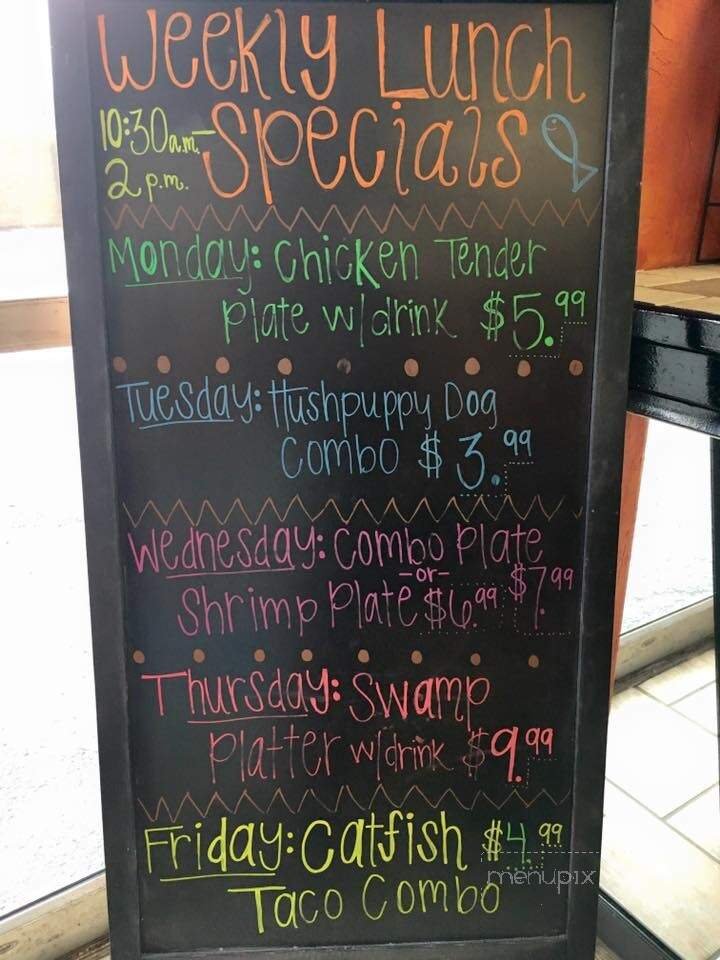 Weekly Lunch
10:30a.m.- Specials
2 p.m.
Monday: Chicken Tender
Plate w/drink $5.99
Tuesday: Hushpuppy Dog
Combo $3.99
Wednesday: Combo Plate $7.99
-or-
Shrimp Plate $6.99
Thursday: Swamp
Platter w/drink $9.99
Friday: Catfish $4.99
Taco Combo
menupix